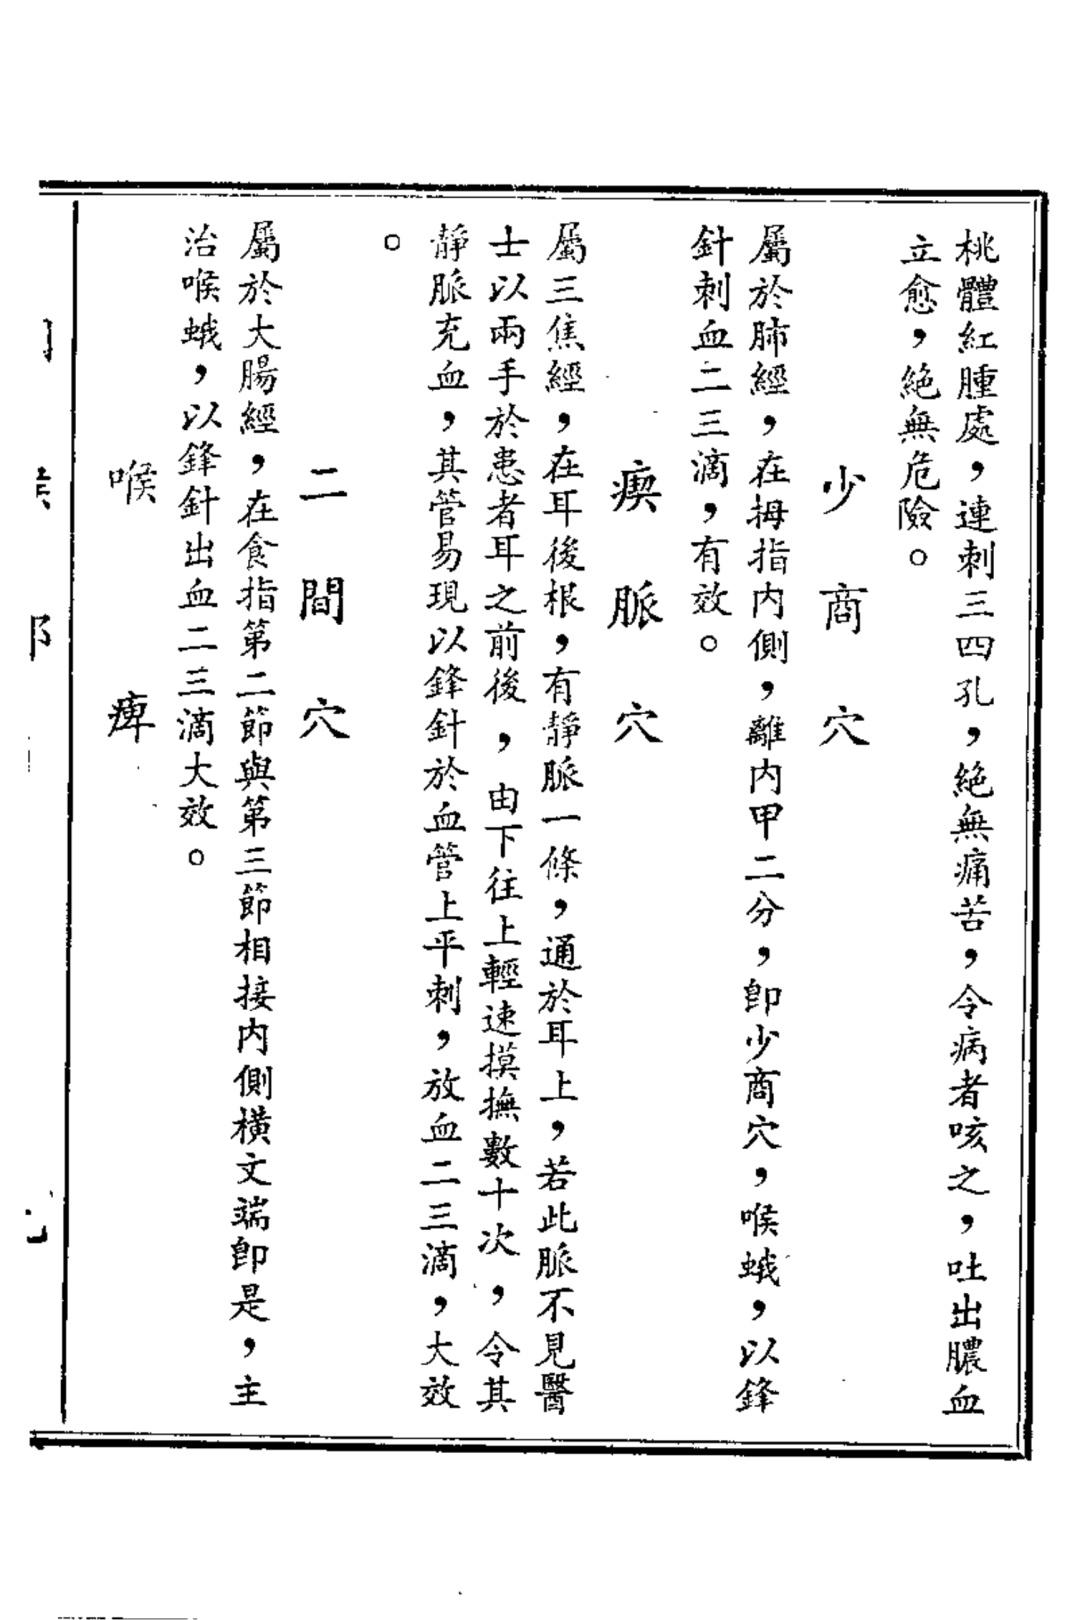 桃體紅腫處，連刺三四孔，絕無痛苦，令病者咳之，吐出膿血
立愈，絕無危險。
少商穴
屬於肺經，在拇指內側，離內甲二分，即少商穴，喉蛾，以鋒
針刺血二三滴，有效。
瘈脈穴
屬三焦經，在耳後根，有靜脈一條，通於耳上，若此脈不見醫
士以兩手於患者耳之前後，由下往上輕速摸撫數十次，令其
靜脈充血，其管易現以鋒針於血管上平刺，放血二三滴，大效
。
二間穴
屬於大腸經，在食指第二節與第三節相接內側橫文端即是，主
治喉蛾，以鋒針出血二三滴大效。
喉痺